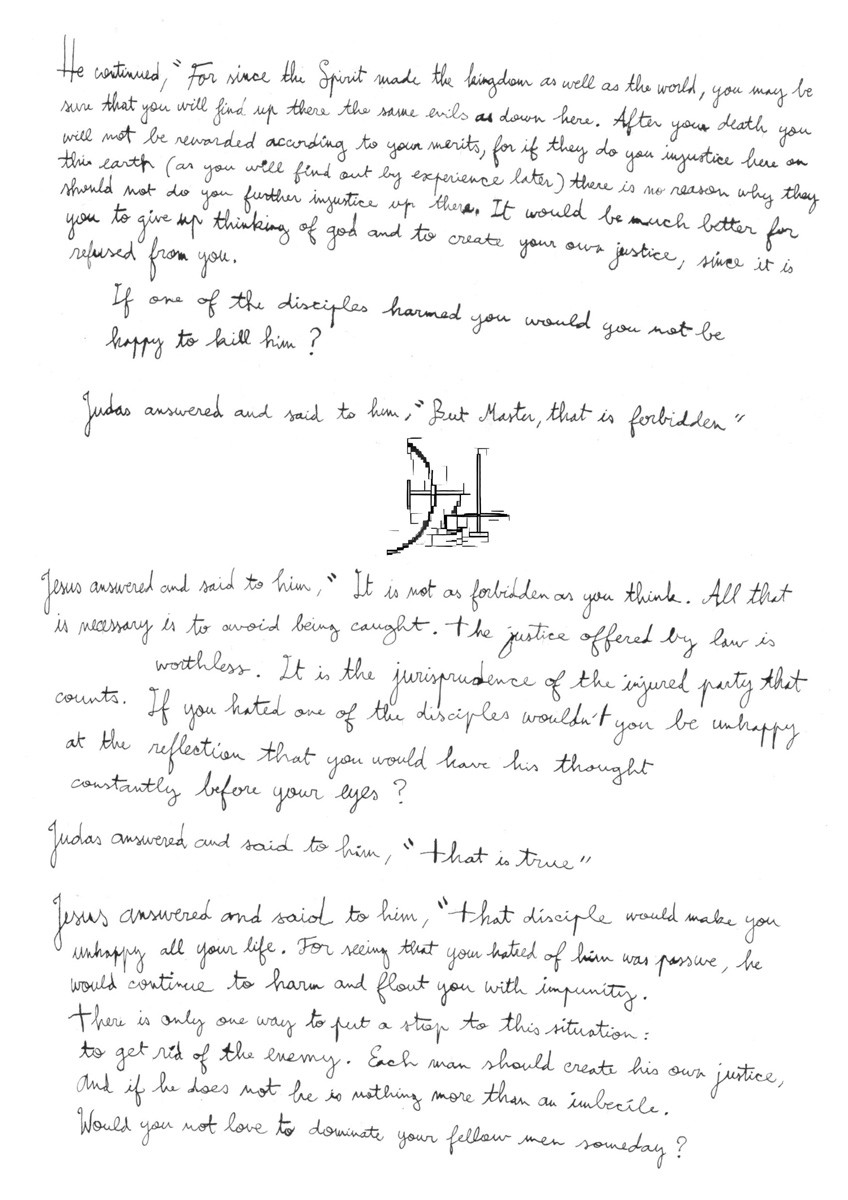 He continued, "For since the Spirit made the kingdom as well as the world, you may be
sure that you will find up there the same evils as down here. After your death you
will not be rewarded according to your merits, for if they do you injustice here on
this earth (as you will find out by experience later) there is no reason why they
should not do you further injustice up there. It would be much better for
you to give up thinking of god and to create your own justice, since it is
refused from you.
If one of the disciples harmed you would you not be
happy to kill him ?
Judas answered and said to him, "But Master, that is forbidden"
Jesus answered and said to him, "It is not as forbidden as you think. All that
is necessary is to avoid being caught. The justice offered by law is
worthless. It is the jurisprudence of the injured party that
counts. If you hated one of the disciples wouldn't you be unhappy
at the reflection that you would have his thought
constantly before your eyes ?
Judas answered and said to him, "that is true"
Jesus answered and said to him, "that disciple would make you
unhappy all your life. For seeing that your hatred of him was passive, he
would continue to harm and flout you with impunity.
There is only one way to put a stop to this situation :
to get rid of the enemy. Each man should create his own justice,
and if he does not he is nothing more than an imbecile.
Would you not love to dominate your fellow men someday ?